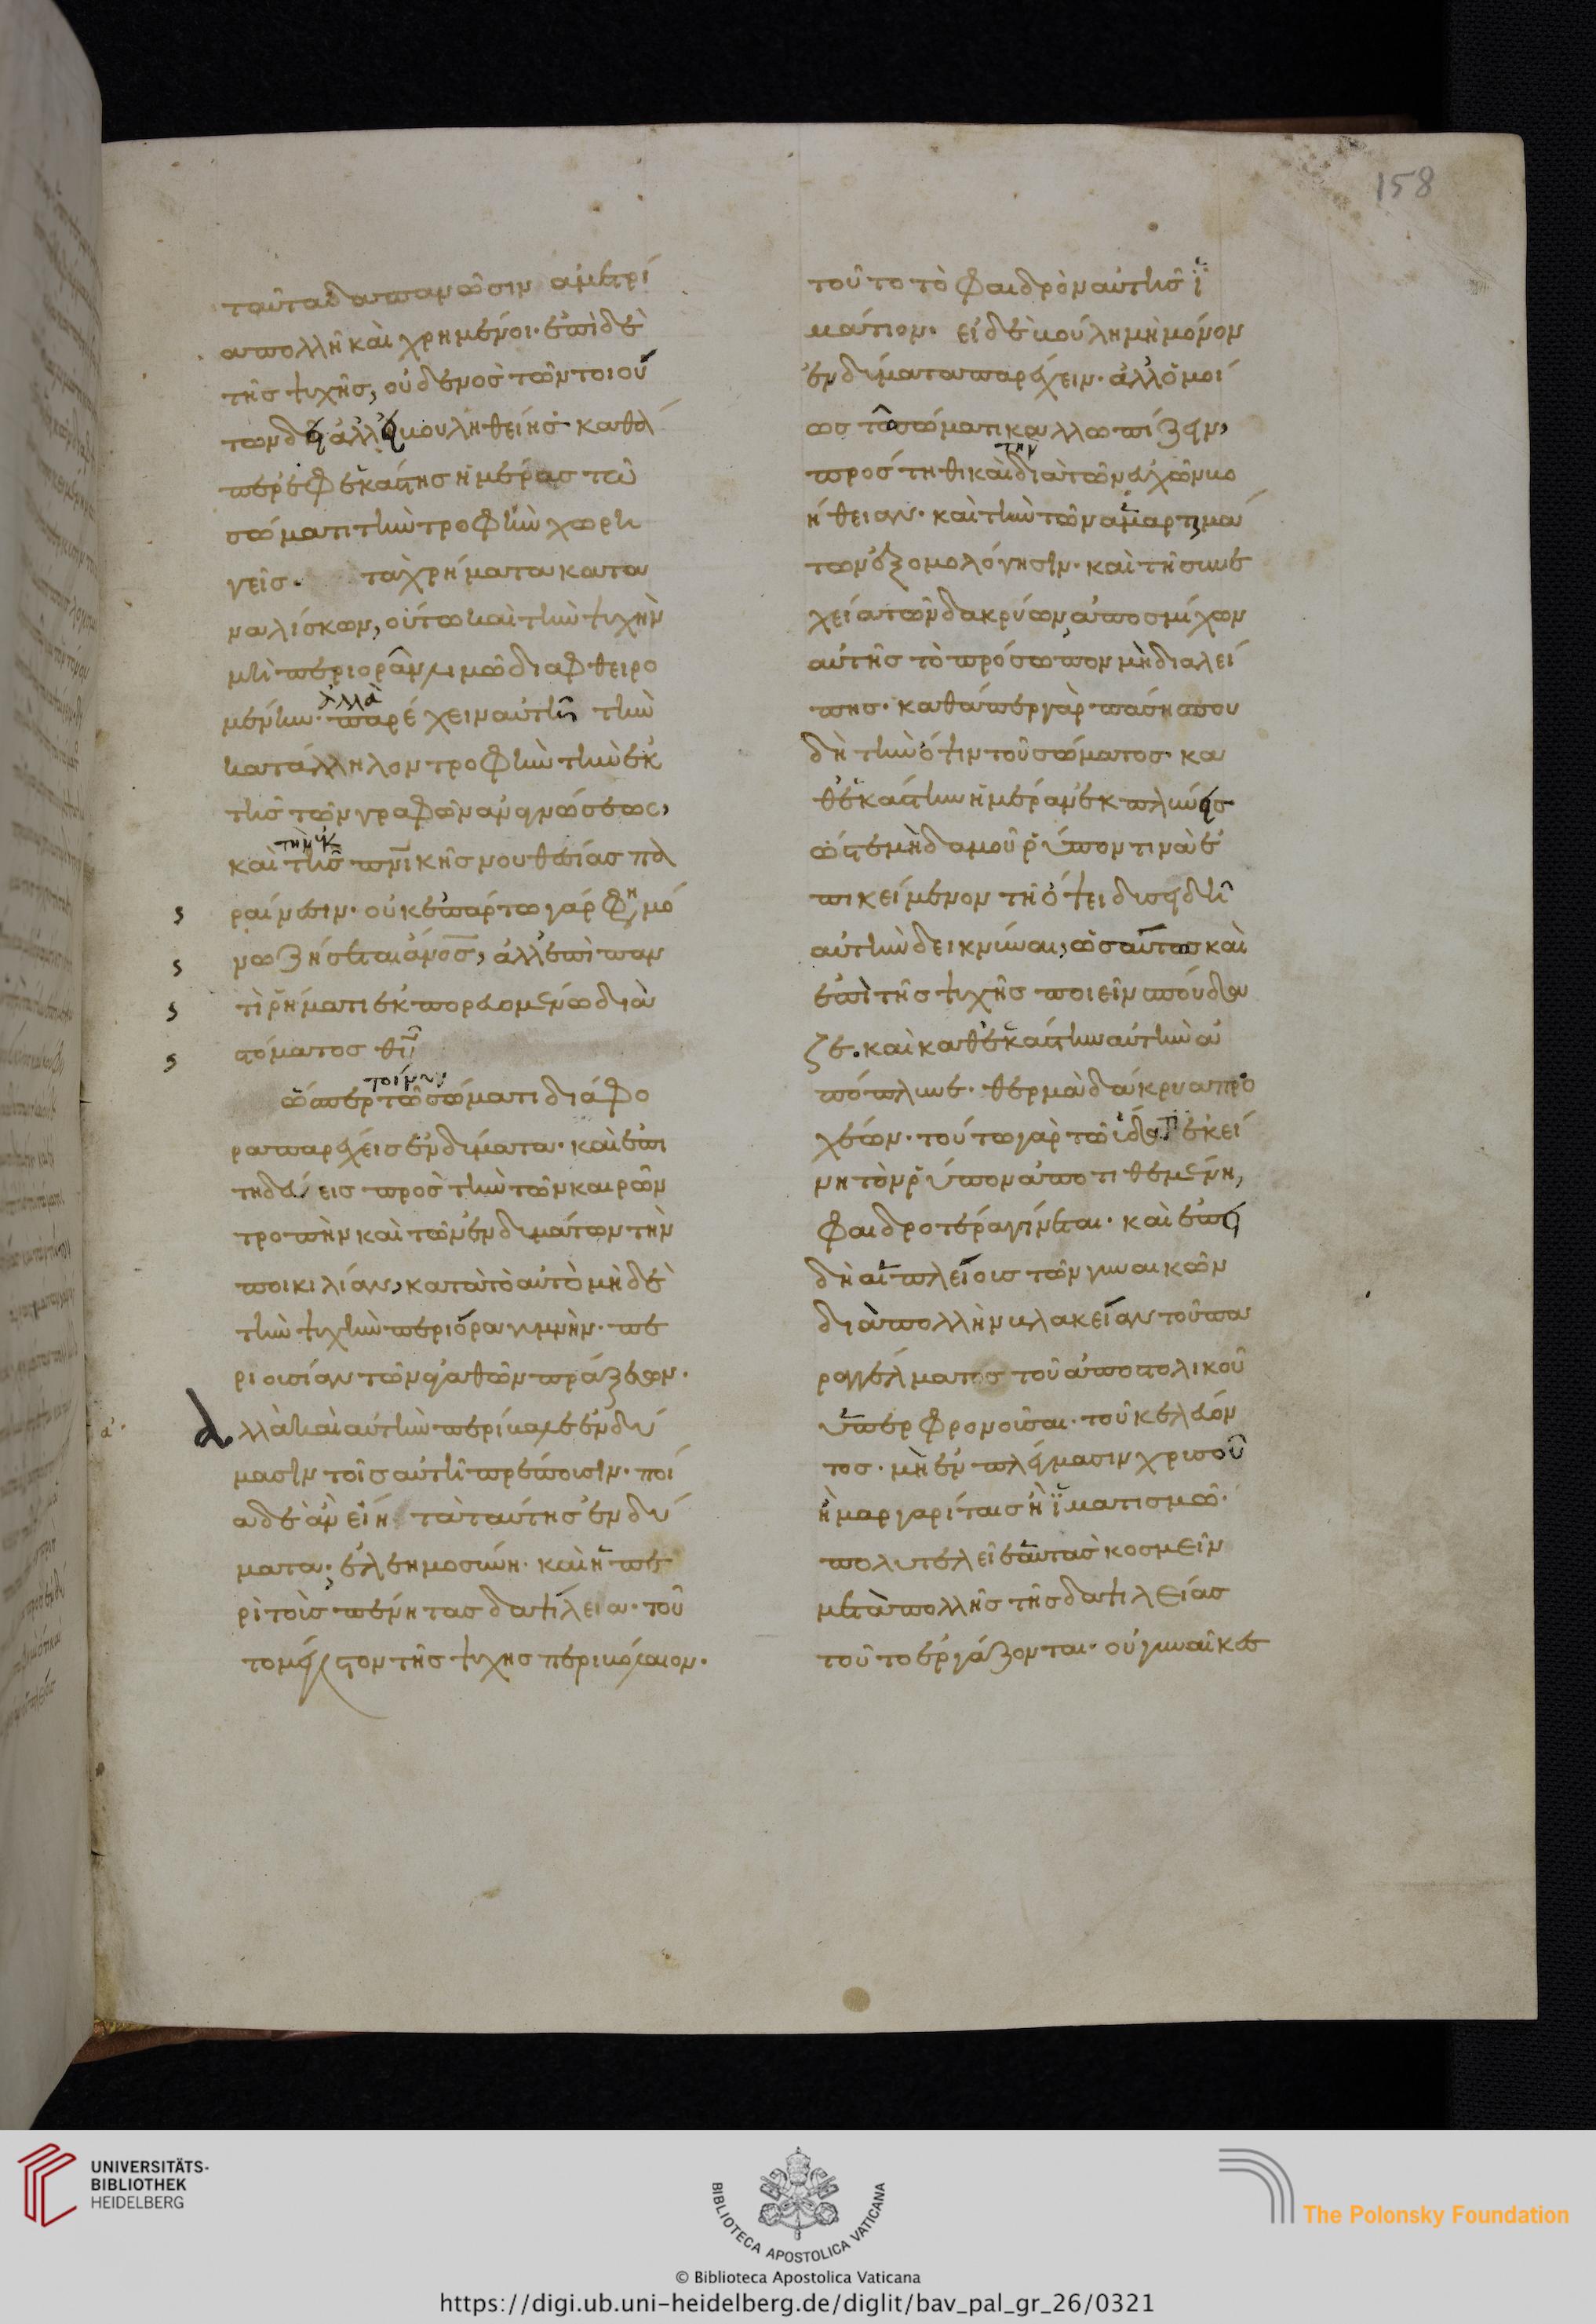 158
ταῦτα δαπανῶσιν ἀμετρί
α πολλῆ καὶ χρημένοι· ἐπὶ δὲ
τῆς ψυχῆς, οὐδενὸς τῶν τοιού
των δεῖ ἀλλ' εἰ βουληθείης καθά
περ ἐφ' ἑκάστης ἡμέρας τῶ
σώματι τὴν τροφὴν χορη
γεῖς. τὰ χρήματα κατα
ναλίσκων, οὕτω καὶ τὴν ψυχὴν
μὴ περιορᾶν λιμῶ διαφθειρο
μένην· ἀλλὰ παρέχειν αὐτῆ τὴν
κατάλληλον τροφὴν τὴν ἐκ
τῆς τῶν γραφῶν ἀναγνώσεως,
καὶ τὴν ἐκ τῆς πνικῆς νουθεσίας πα
ραίνεσιν· οὐκ ἐπ' ἄρτω γάρ φη μό
νω ζήσεται ἄνος, ἀλλ' ἐπὶ παν
τὶ ῥήματι ἐκπορευομένω διὰ
στόματος θυ
ὥσπερ τοίνυν τῶ σώματι διάφο
ρα παρέχεις ἐνδύματα· καὶ ἐπι
τηδεύεις πρὸς τὴν τῶν καιρῶν
τροπὴν καὶ τῶν ἐνδυμάτων τὴν
ποικιλίαν, κατὰ τὸ αὐτὸ μὴ δὲ
τὴν ψυχὴν περιόρα γυμνὴν· πε
ριουσίαν τῶν ἀγαθῶν πράξεων.
ἀλλὰ καὶ αὐτὴν περίβαλε ἐνδύ
μασιν τοῖς αὐτῆ πρέπουσιν· ποῖ
α δὲ ἂν εἴη τὰ ταύτης ἐνδύ
ματα· ἐλεημοσύνη· καὶ ἡ πε
ρὶ τοὺς πένητας δαψίλεια· τοῦ
το μέγιστον τῆς ψυχῆς περιβόλαιον.
τοῦτο τὸ φαιδρὸν αὐτῆς ἱ
μάτιον· εἰ δὲ βούλη μὴ μόνον
ἐνδύματα παρέχειν· ἀλλ' ὁμοί
ως τῶ σώματι καλλωπίζειν,
προστηθι καὶ τὴν διὰ τῶν εὐχῶν βο
ήθειαν· καὶ τὴν τῶν ἁμαρτημά
των ἐξομολόγησιν· καὶ τῆ συνε
χεία τῶν δακρύων, ἀποσμήχων
αὐτῆς τὸ πρόσωπον μὴ διαλεί
πης· καθάπερ γὰρ πάση σπου
δῆ τὴν ὄψιν τοῦ σώματος κα
θ' ἑκάστην ἡμέραν ἐκπλύνεις
ὥστε μηδαμοῦ ῥύπον τινὰ ἐ
πικείμενον τῆ ὄψει δυσειδῆ
αὐτὴν δεικνύναι, ὡσαύτως καὶ
ἐπὶ τῆς ψυχῆς ποιεῖν σπούδα
ζε. καὶ καθ' ἑκάστην αὐτὴν ἀ
πόπλυνε· θερμὰ δάκρυα προ
χέων· τούτω γὰρ τῶ ὕδατι ἐκεί
νη τὸν ῥύπον ἀποτιθεμένη,
φαιδροτέρα γίνεται· καὶ ἐπει
δὴ αἱ πλείους τῶν γυναικῶν
διὰ πολλὴν βλακείαν τοῦ πα
ραγγέλματος τοῦ ἀποστολικοῦ
ὑπερφρονοῦσαι· τοῦ κελεύον
τος· μὴ ἐν πλέγμασιν χρυσοῦ
ἢ μαργαρίταις ἢ ἱματισμῶ·
πολυτελεῖ ἑαυτὰς κοσμεῖν
μετὰ πολλῆς τῆς δαψιλείας
τοῦτο ἐργάζονται· οὐ γυναῖκες
UNIVERSITÄTS-
BIBLIOTHEK
HEIDELBERG
BIBLIOTECA APOSTOLICA VATICANA
The Polonsky Foundation
© Biblioteca Apostolica Vaticana
https://digi.ub.uni-heidelberg.de/diglit/bav_pal_gr_26/0321